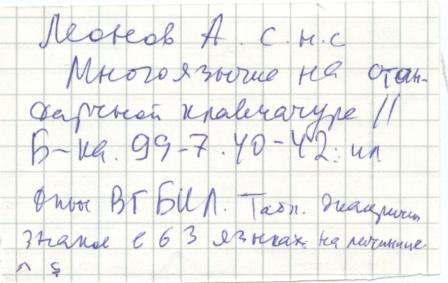 Леонов А. с.н.с
Многоязычие на стан-
дартной клавиатуре //
Б-ка. 99-7.40-42: ил
Опыт ВГБИЛ. Табл.
знаков в 63 языках на латинице